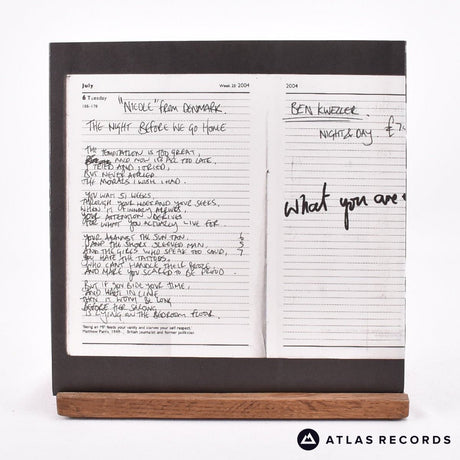 July
Week 28 2004
6 Tuesday
188-178
"NICOLE" FROM DENMARK.
THE NIGHT BEFORE WE GO HOME
THE TEMPTATION IS TOO GREAT,
AND NOW IT'S ALL TOO LATE.
I TRIED AND I TRIED,
BUT NEVER
THE MORALS I WISH I HAD.
YOU WAIT 51 WEEKS,
THROUGH YOUR WEEP AND YOUR SEEKS,
WHEN IT FINALLY ARRIVES,
YOUR ATTENTION DERIVES
FOR WHAT YOU ACTUALLY LIVE FOR.
YOUR AGAINST THE SUN TAN,
AND THE SHORT SLEEVED MAN,
AND THE GIRLS WHO SPEAK TOO LOUD,
YOU HATE THE TATTOOS,
WHO CAN'T HANDLE THEIR BOOZE
AND MAKE YOU SCARED TO BE PROUD.
BUT IF YOU BIDE YOUR TIME,
AND WAIT IN LINE
THEN IT WONT BE LONG
BEFORE HER SARONG
IS LYING ON THE BEDROOM FLOOR.
'Being an MP feeds your vanity and starves your self respect.'
Matthew Parris, 1949- , British journalist and former politician
2004
BEN KWELLER.
NIGHT & DAY £7
What you are
ATLAS RECORDS